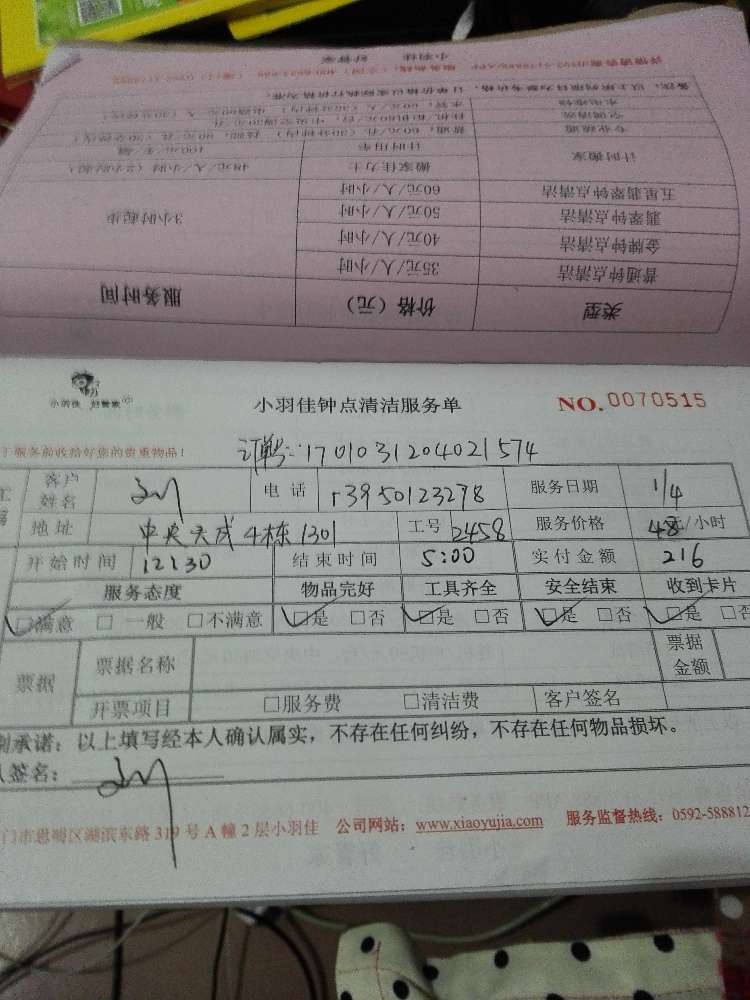 小羽佳 好管家
类型 价格（元） 服务时间
普通钟点清洁 35元/人/小时
金牌钟点清洁 40元/人/小时
翡翠钟点清洁 50元/人/小时 3小时起步
五星翡翠钟点清洁 60元/人/小时
计时搬家 搬家佳力士 48元/人/小时
计时用车
专业疏通
空调清洗
小羽佳 好管家
小羽佳钟点清洁服务单 NO.0070515
于服务前收拾好您的贵重物品！ 订单号:1701031204021574
客户姓名 电话 13950123278 服务日期 1/4
地址 中央天成4栋1301 工号 2458 服务价格 48元/小时
开始时间 12:30 结束时间 5:00 实付金额 216
服务态度 物品完好 工具齐全 安全结束 收到卡片
☑满意 □一般 □不满意 ☑是 □否 ☑是 □否 ☑是 □否 ☑是 □否
票据 票据名称 票据金额
开票项目 □服务费 □清洁费 客户签名
承诺：以上填写经本人确认属实，不存在任何纠纷，不存在任何物品损坏。
签名：
门市思明区湖滨东路319号A幢2层小羽佳 公司网站：www.xiaoyujia.com 服务监督热线：0592-588812